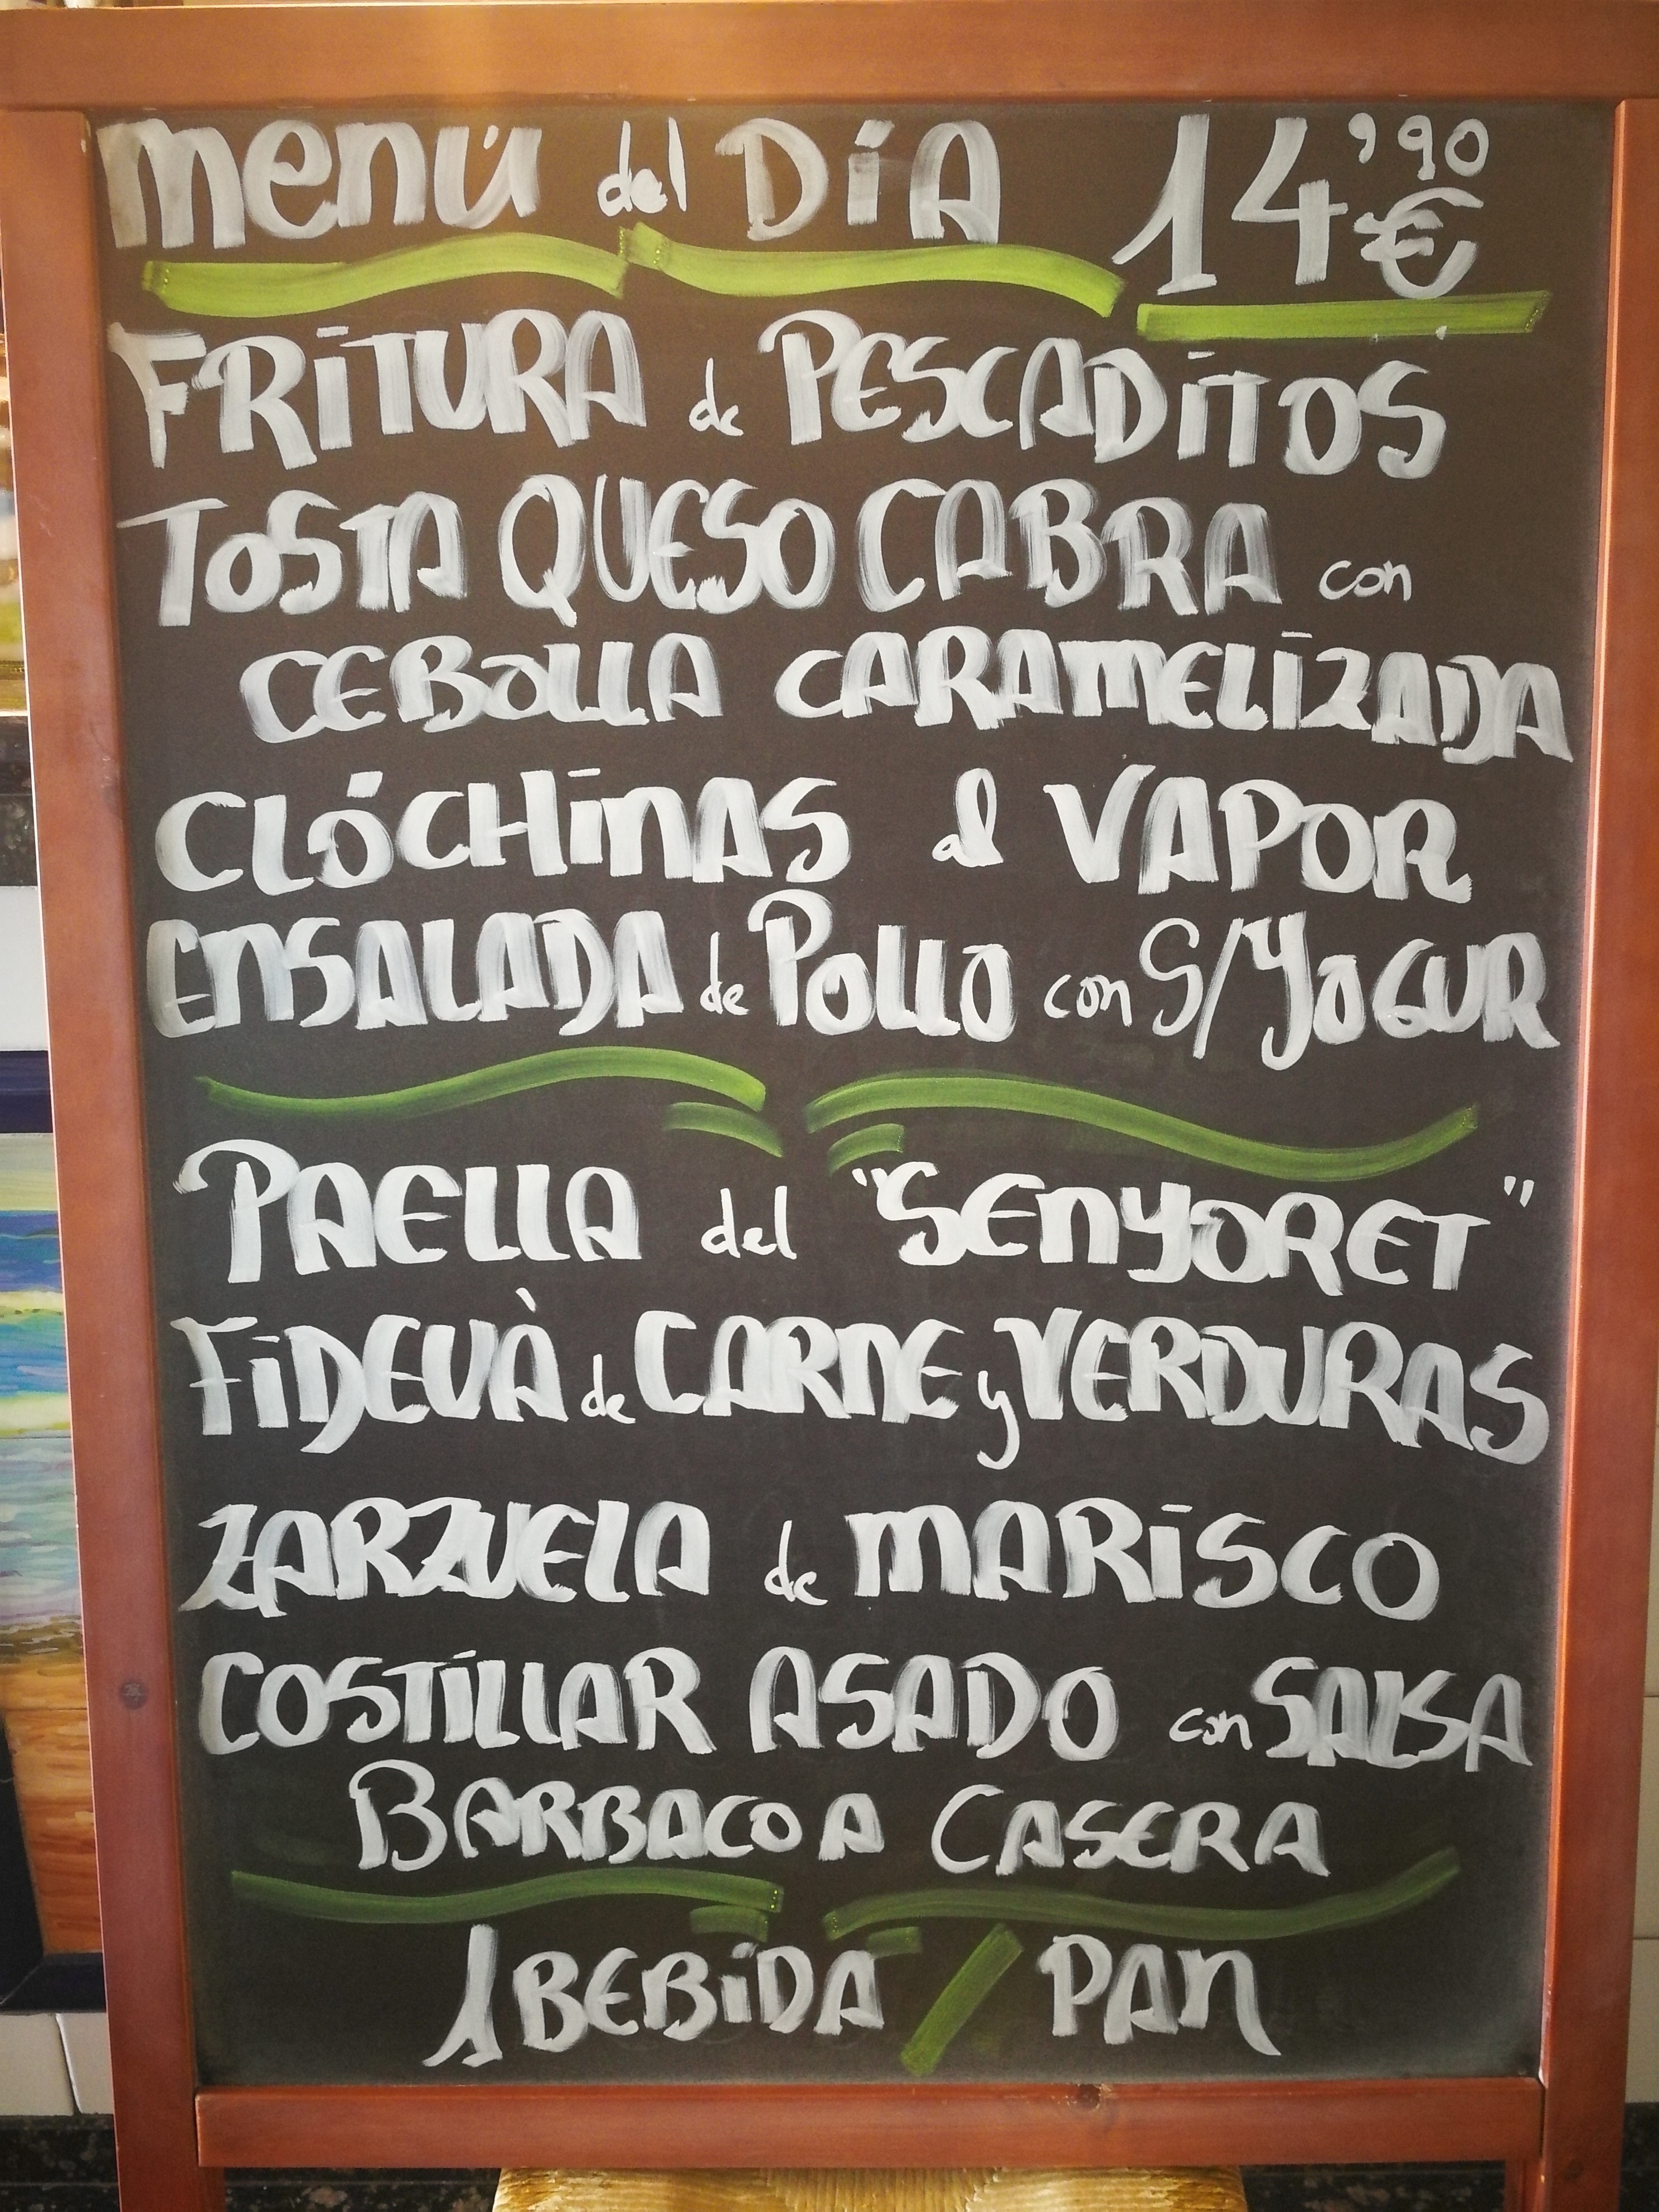 Menú del Día 14'90 €
FRITURA de PESCADITOS
TOSTA QUESO CABRA con
CEBOLLA CARAMELIZADA
CLÓCHINAS al VAPOR
ENSALADA de POLLO con S/YOGUR
PAELLA del "SENYORET"
FIDEUÀ de CARNE y VERDURAS
ZARZUELA de MARISCO
COSTILLAR ASADO con SALSA
BARBACOA CASERA
1 BEBIDA / PAN